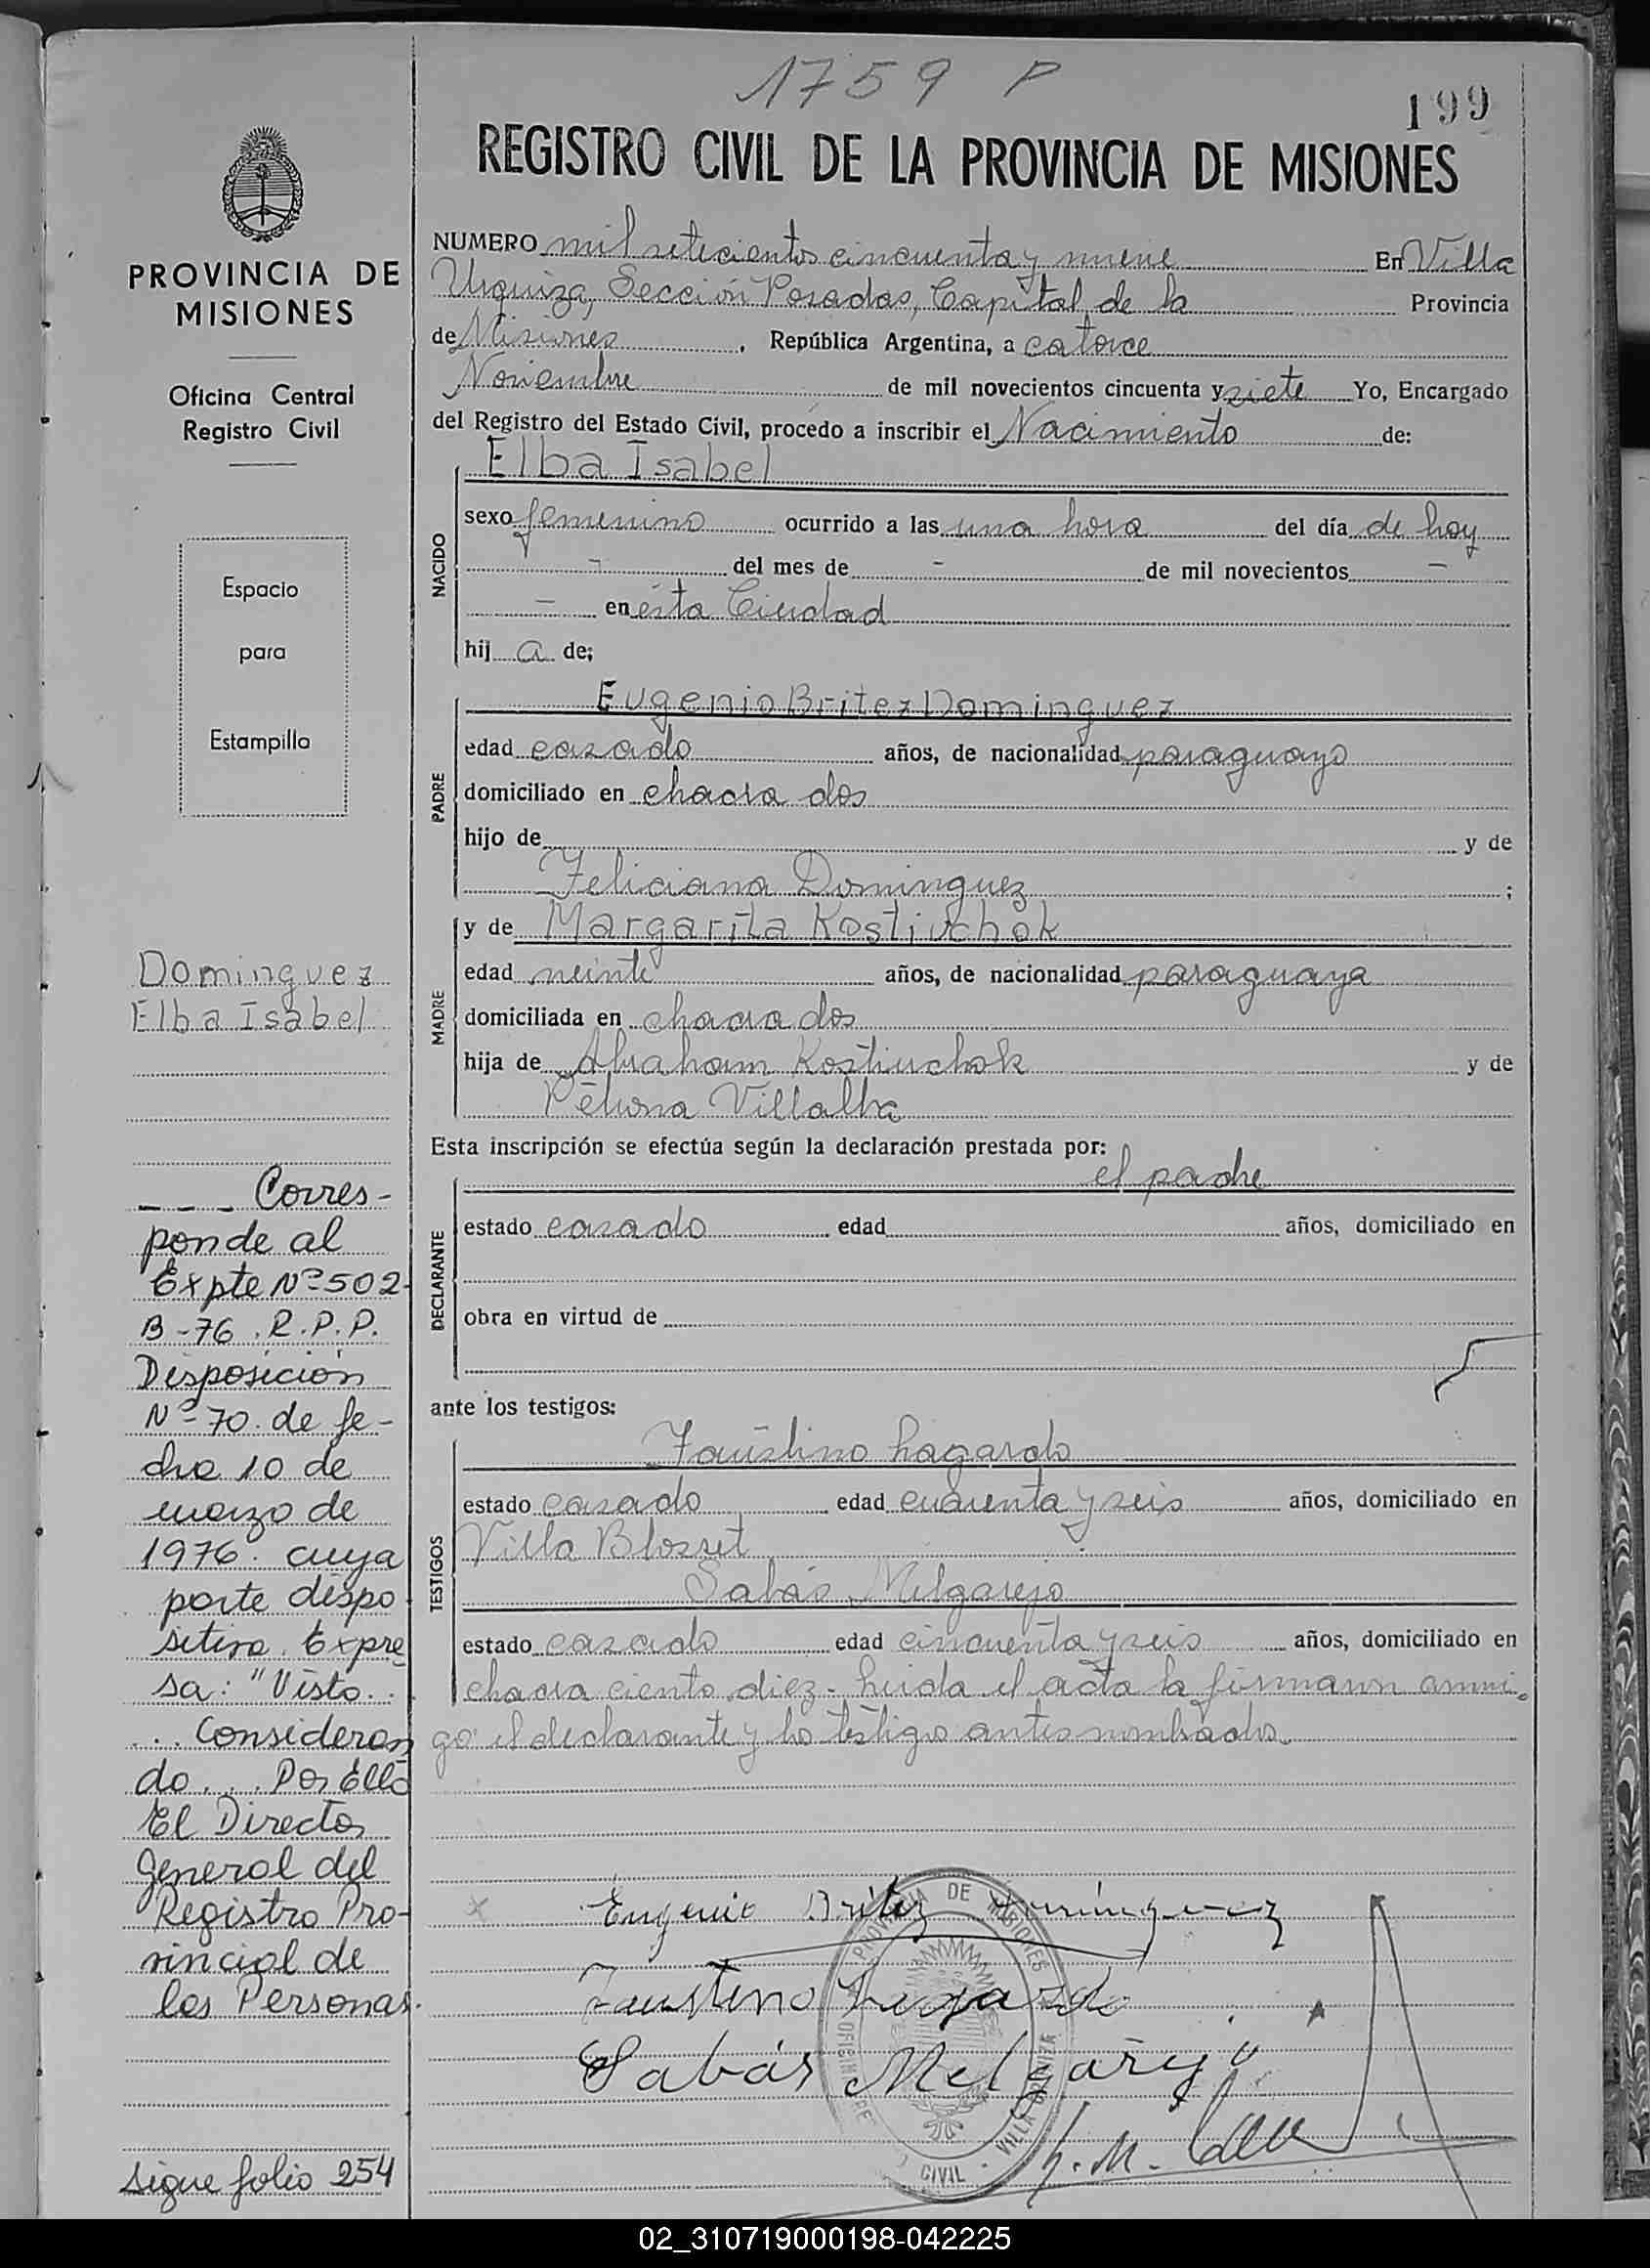 1759 P
199
REGISTRO CIVIL DE LA PROVINCIA DE MISIONES
PROVINCIA DE
MISIONES
Oficina Central
Registro Civil
Espacio
para
Estampilla
Dominguez
Elba Isabel
_ _ _ Corres-
ponde al
Expte Nº 502-
B-76. R.P.P.
Disposición
Nº 70. de fe-
cha 10 de
marzo de
1976. cuya
parte dispo
sitiva. Expre
sa: "Visto. . .
. . . Consideran
do. . . Por Ello
El Director
General del
Registro Pro-
vincial de
las Personas.
Sigue folio 254
NUMERO mil setecientos cincuenta y nueve En Villa
Urquiza, Sección Posadas, Capital de la Provincia
de Misiones, República Argentina, a catorce
Noviembre de mil novecientos cincuenta y siete Yo, Encargado
del Registro del Estado Civil, procedo a inscribir el Nacimiento de:
Elba Isabel
NACIDO
sexo femenino ocurrido a las una hora del día de hoy
- del mes de - de mil novecientos -
- en ésta Ciudad
hij a de;
Eugenio Britez Dominguez
PADRE
edad casado años, de nacionalidad paraguayo
domiciliado en chacra dos
hijo de y de
Feliciana Dominguez ;
y de Margarita Kostiuchok
MADRE
edad veinte años, de nacionalidad paraguaya
domiciliada en chacra dos
hija de Abraham Kostiuchok y de
Petrona Villalba
Esta inscripción se efectúa según la declaración prestada por:
el padre
DECLARANTE
estado casado edad años, domiciliado en
obra en virtud de
ante los testigos:
Faustino Lagardo
TESTIGOS
estado casado edad cuarenta y seis años, domiciliado en
Villa Blosset
Sabás Melgarejo
estado casado edad cincuenta y seis años, domiciliado en
chacra ciento diez - Leida el acta la firmaron conmi-
go el declarante y los testigos antes nombrados.
Eugenio Britez Dominguez
Faustino Lagardo
Sabás Melgarejo
PROVINCIA DE MISIONES
CIVIL
02_310719000198-042225